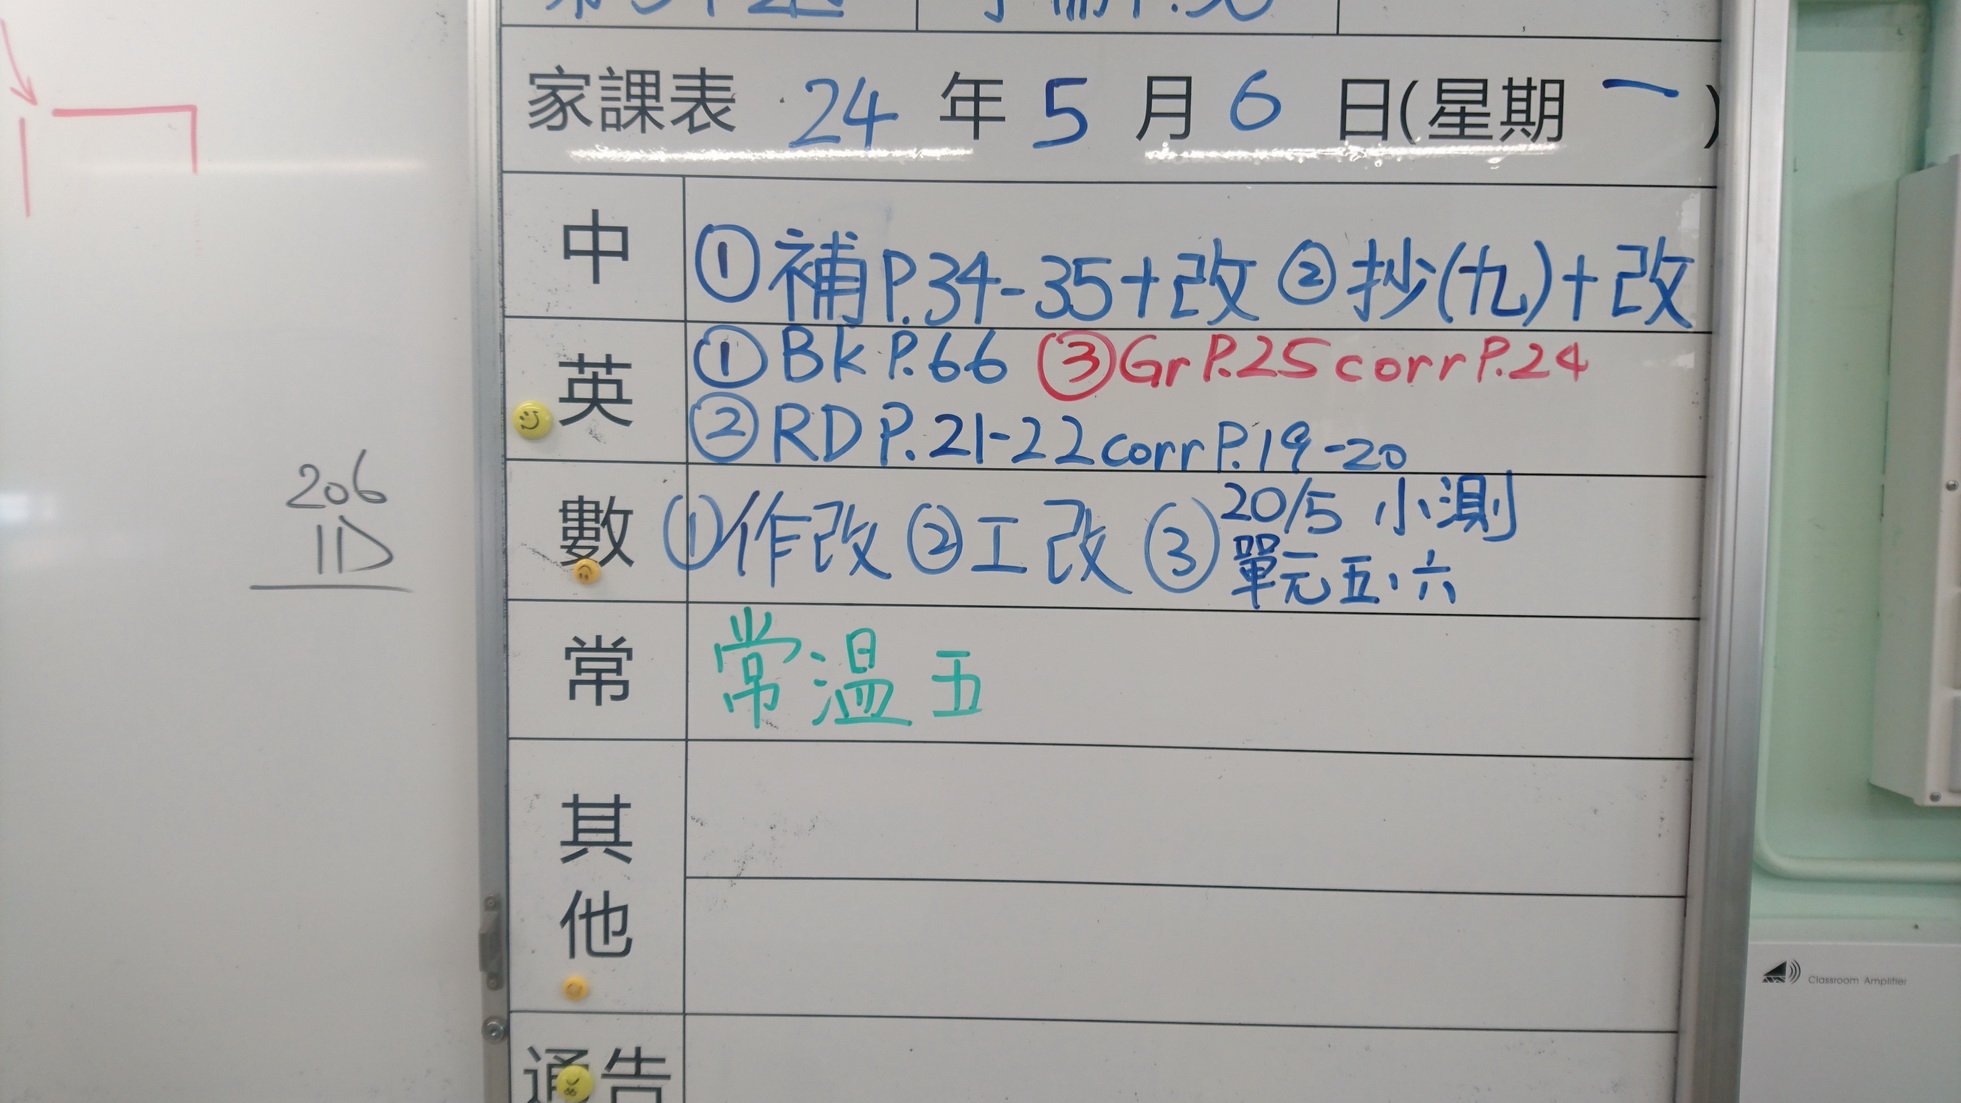 家課表 24 年 5 月 6 日(星期 一 )
中 ①補P.34-35+改 ②抄(九)+改
英 ①BK P.66 ③Gr P.25 corr P.24
②RD P.21-22 corr P.19-20
數 ①作改 ②工改 ③20/5 小測
單元五、六
常 常溫五
其他
通告
206
1D
Classroom Amplifier